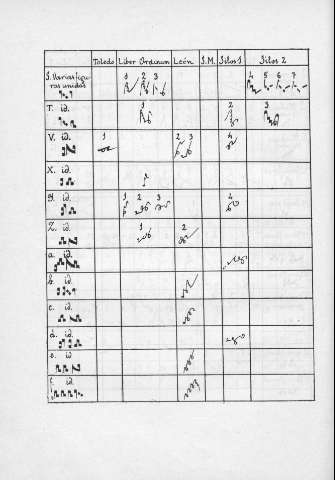 Toledo Liber Ordinum León S.M. Silos 1 Silos 2
S. Varias figu
ras unidas
1 2 3 4 5 6 7
T. id.
1 2 3
V. id.
1 2 3 4
X. id.
Y. id.
1 2 3 4
Z. id.
1 2
a. id.
b. id.
c. id.
d. id.
e. id.
f. id.